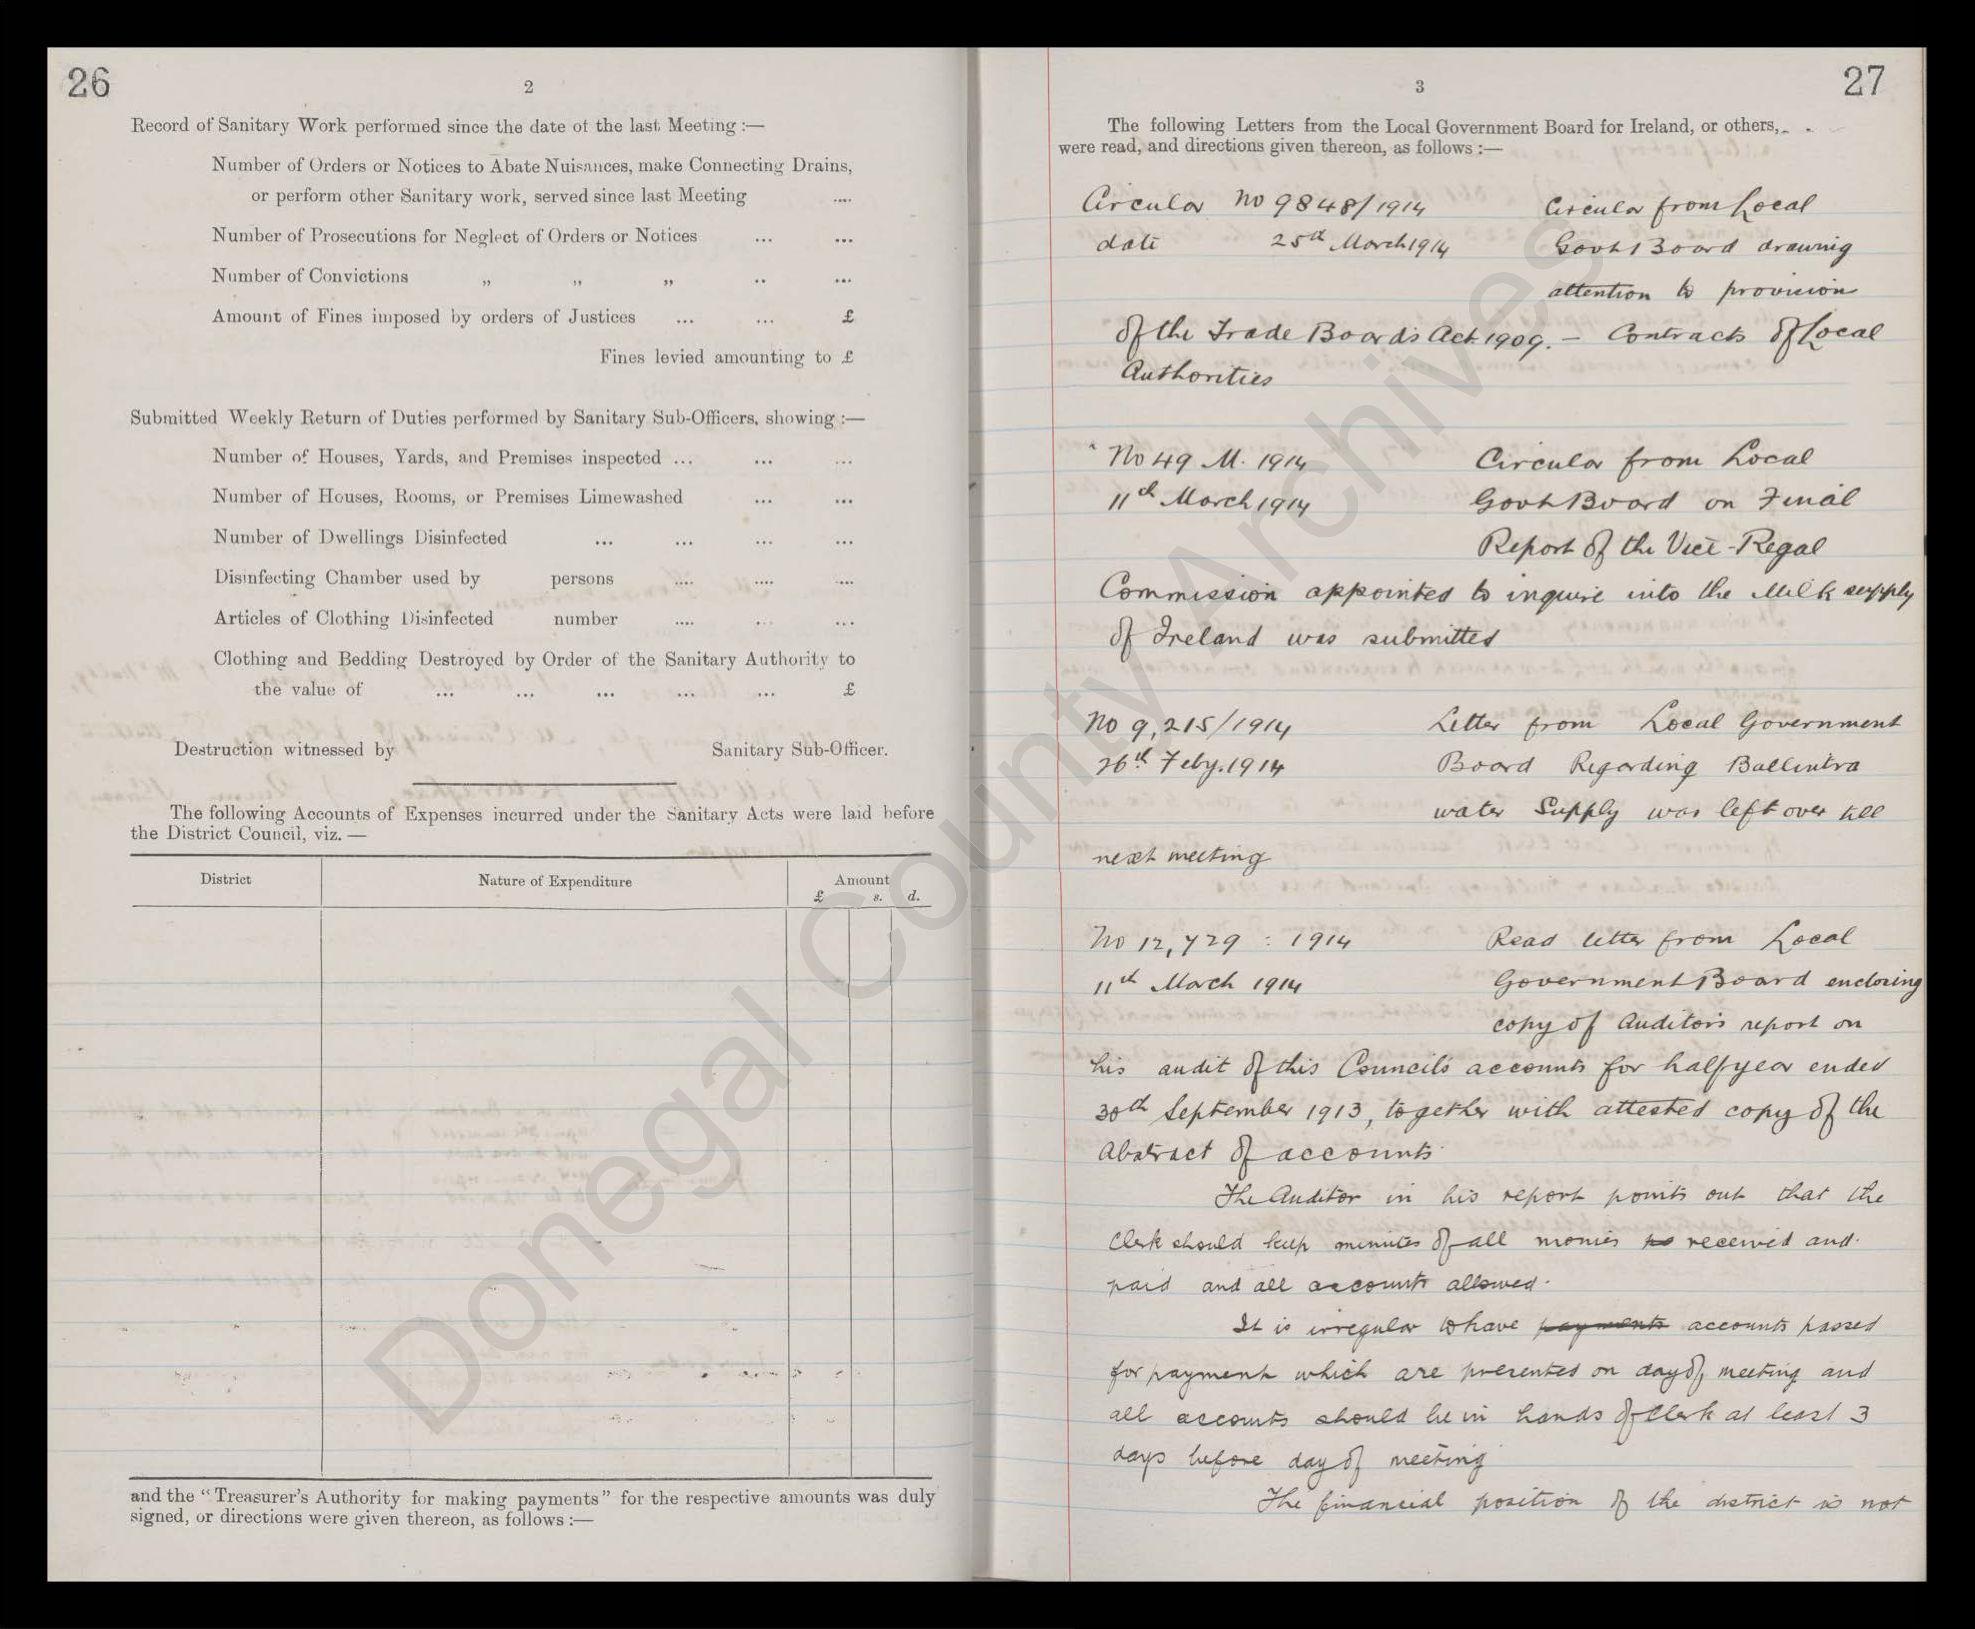 26
2
Record of Sanitary Work performed since the date of the last Meeting :—
Number of Orders or Notices to Abate Nuisances, make Connecting Drains,
or perform other Sanitary work, served since last Meeting ....
Number of Prosecutions for Neglect of Orders or Notices ... ...
Number of Convictions „ „ „ .. ...
Amount of Fines imposed by orders of Justices ... ... £
Fines levied amounting to £
Submitted Weekly Return of Duties performed by Sanitary Sub-Officers, showing :—
Number of Houses, Yards, and Premises inspected ... ... ...
Number of Houses, Rooms, or Premises Limewashed ... ...
Number of Dwellings Disinfected ... ... ... ...
Disinfecting Chamber used by persons .... .... ....
Articles of Clothing Disinfected number .... ... ...
Clothing and Bedding Destroyed by Order of the Sanitary Authority to
the value of ... ... ... ... ... £
Destruction witnessed by Sanitary Sub-Officer.
The following Accounts of Expenses incurred under the Sanitary Acts were laid before
the District Council, viz. —
District Nature of Expenditure Amount
£ s. d.
and the "Treasurer's Authority for making payments" for the respective amounts was duly
signed, or directions were given thereon, as follows :—
3
27
The following Letters from the Local Government Board for Ireland, or others,
were read, and directions given thereon, as follows :—
Circular No 9848/1914 Circular from Local
date 25th March 1914 Govt Board drawing
attention to provision
of the Trade Boards Act 1909. — Contracts of Local
Authorities
No 49 M. 1914 Circular from Local
11th March 1914 Govt Board on Final
Report of the Vice-Regal
Commission appointed to inquire into the Milk supply
of Ireland was submitted
No 9,215/1914 Letter from Local Government
26th Feby. 1914 Board Regarding Ballintra
water Supply was left over till
next meeting
No 12,729 : 1914 Read letter from Local
11th March 1914 Government Board enclosing
copy of Auditors report on
his audit of this Councils accounts for half year ended
30th September 1913, together with attested copy of the
Abstract of accounts
The Auditor in his report points out that the
Clerk should keep minutes of all monies received and
paid and all accounts allowed.
It is irregular to have payments accounts passed
for payment which are presented on day of meeting and
all accounts should be in hands of Clerk at least 3
days before day of meeting
The financial position of the district is not
Donegal County Archives